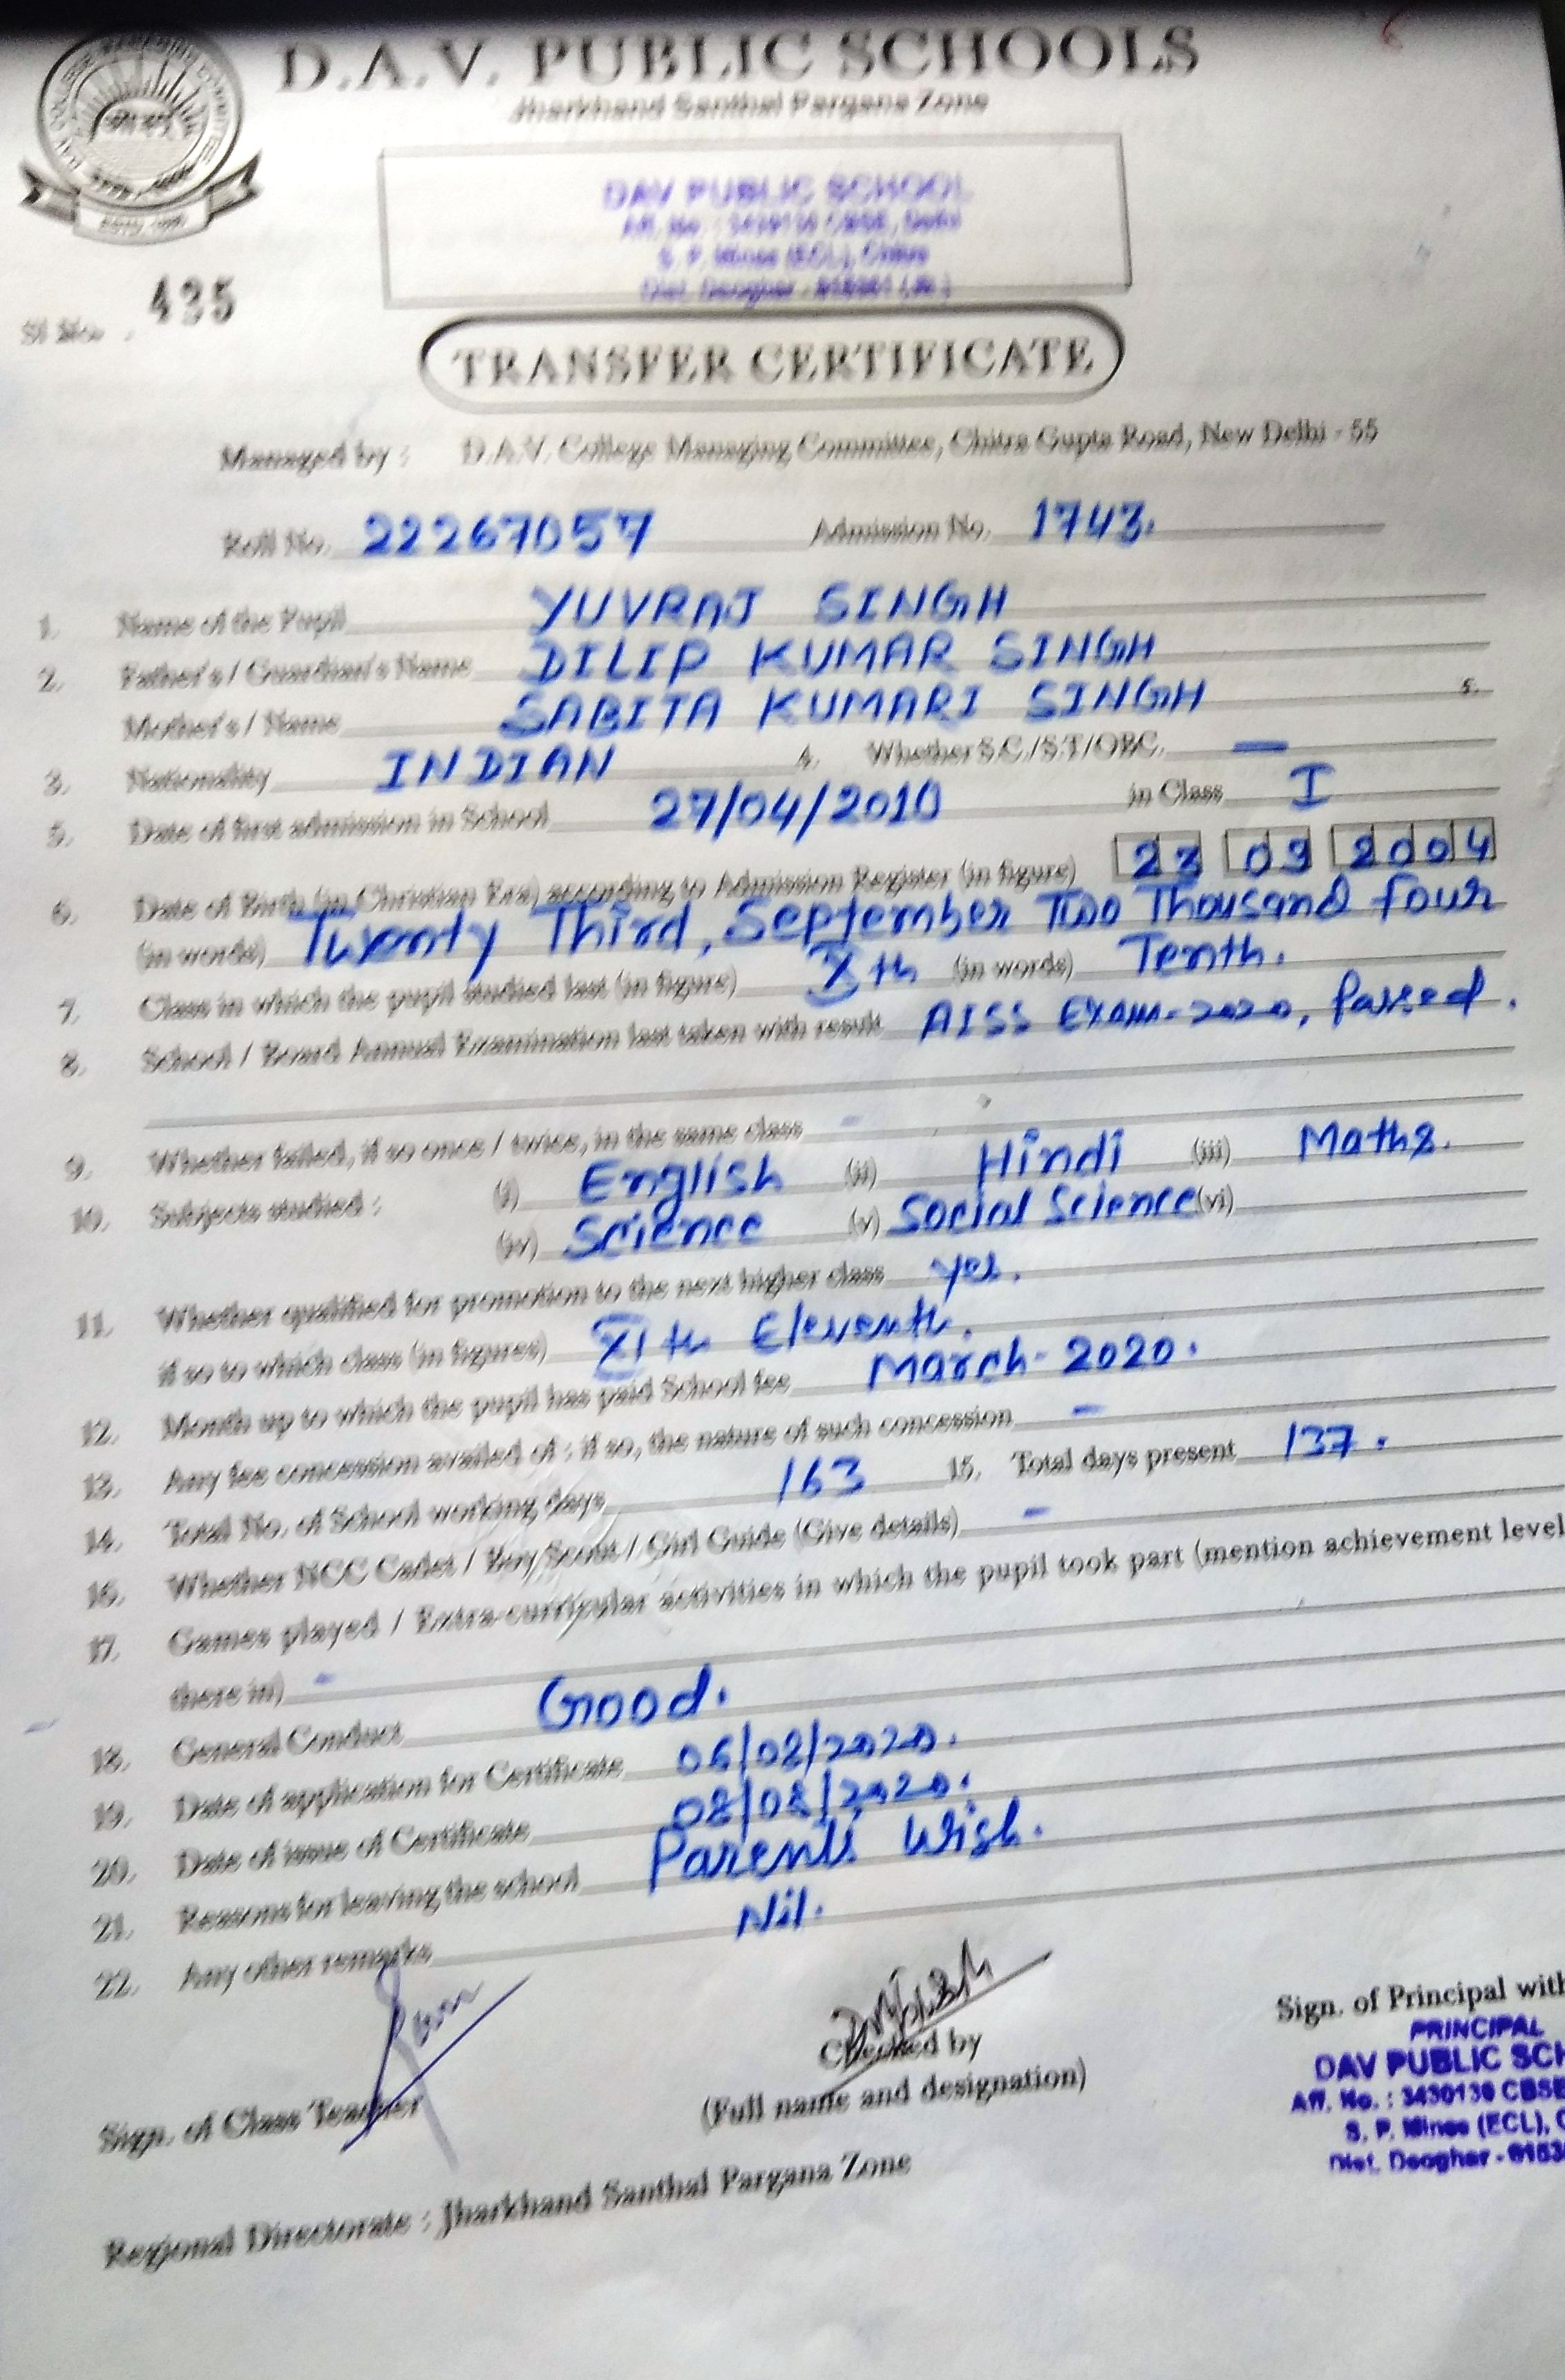 D.A.V. PUBLIC SCHOOLS
Jharkhand Santhal Pargana Zone
DAV PUBLIC SCHOOL
Aff. No. : 3430130 CBSE, Delhi
S. P. Mines (ECL), Chitra
Dist. Deoghar -
Sl No. 435
TRANSFER CERTIFICATE
Managed by : D.A.V. College Managing Committee, Chitra Gupta Road, New Delhi - 55
Roll No. 22267057 Admission No. 1743.
1. Name of the Pupil YUVRAJ SINGH
2. Father's / Guardian's Name DILIP KUMAR SINGH
Mother's / Name SABITA KUMARI SINGH
3. Nationality INDIAN 4. Whether S.C./S.T/OBC. —
5. Date of first admission in School 27/04/2010 in Class I
6. Date of Birth (in Christian Era) according to Admission Register (in figure) 23 09 2004
(in words) Twenty Third, September Two Thousand Four
7. Class in which the pupil studied last (in figure) Xth (in words) Tenth.
8. School / Board Annual Examination last taken with result AISS EXAM-2020, Passed.
9. Whether failed, if so once / twice, in the same class -
10. Subjects studied : (i) English (ii) Hindi (iii) Maths.
(iv) Science (v) Social Science (vi)
11. Whether qualified for promotion to the next higher class Yes.
if so to which class (in figures) XIth Eleventh.
12. Month up to which the pupil has paid School fee March-2020.
13. Any fee concession availed of : if so, the nature of such concession -
14. Total No. of School working days 163 15. Total days present 137.
16. Whether NCC Cadet / Boy Scout / Girl Guide (Give details) -
17. Games played / Extra-curricular activities in which the pupil took part (mention achievement level
there in) -
18. General Conduct Good.
19. Date of application for Certificate 06/08/2020.
20. Date of issue of Certificate 08/08/2020.
21. Reasons for leaving the school Parents Wish.
22. Any other remarks Nil.
Sign. of Class Teacher
Checked by
(Full name and designation)
Sign. of Principal with
PRINCIPAL
DAV PUBLIC SCH
Aff. No. : 3430130 CBSE
S. P. Mines (ECL), C
Dist. Deoghar -
Regional Directorate : Jharkhand Santhal Pargana Zone